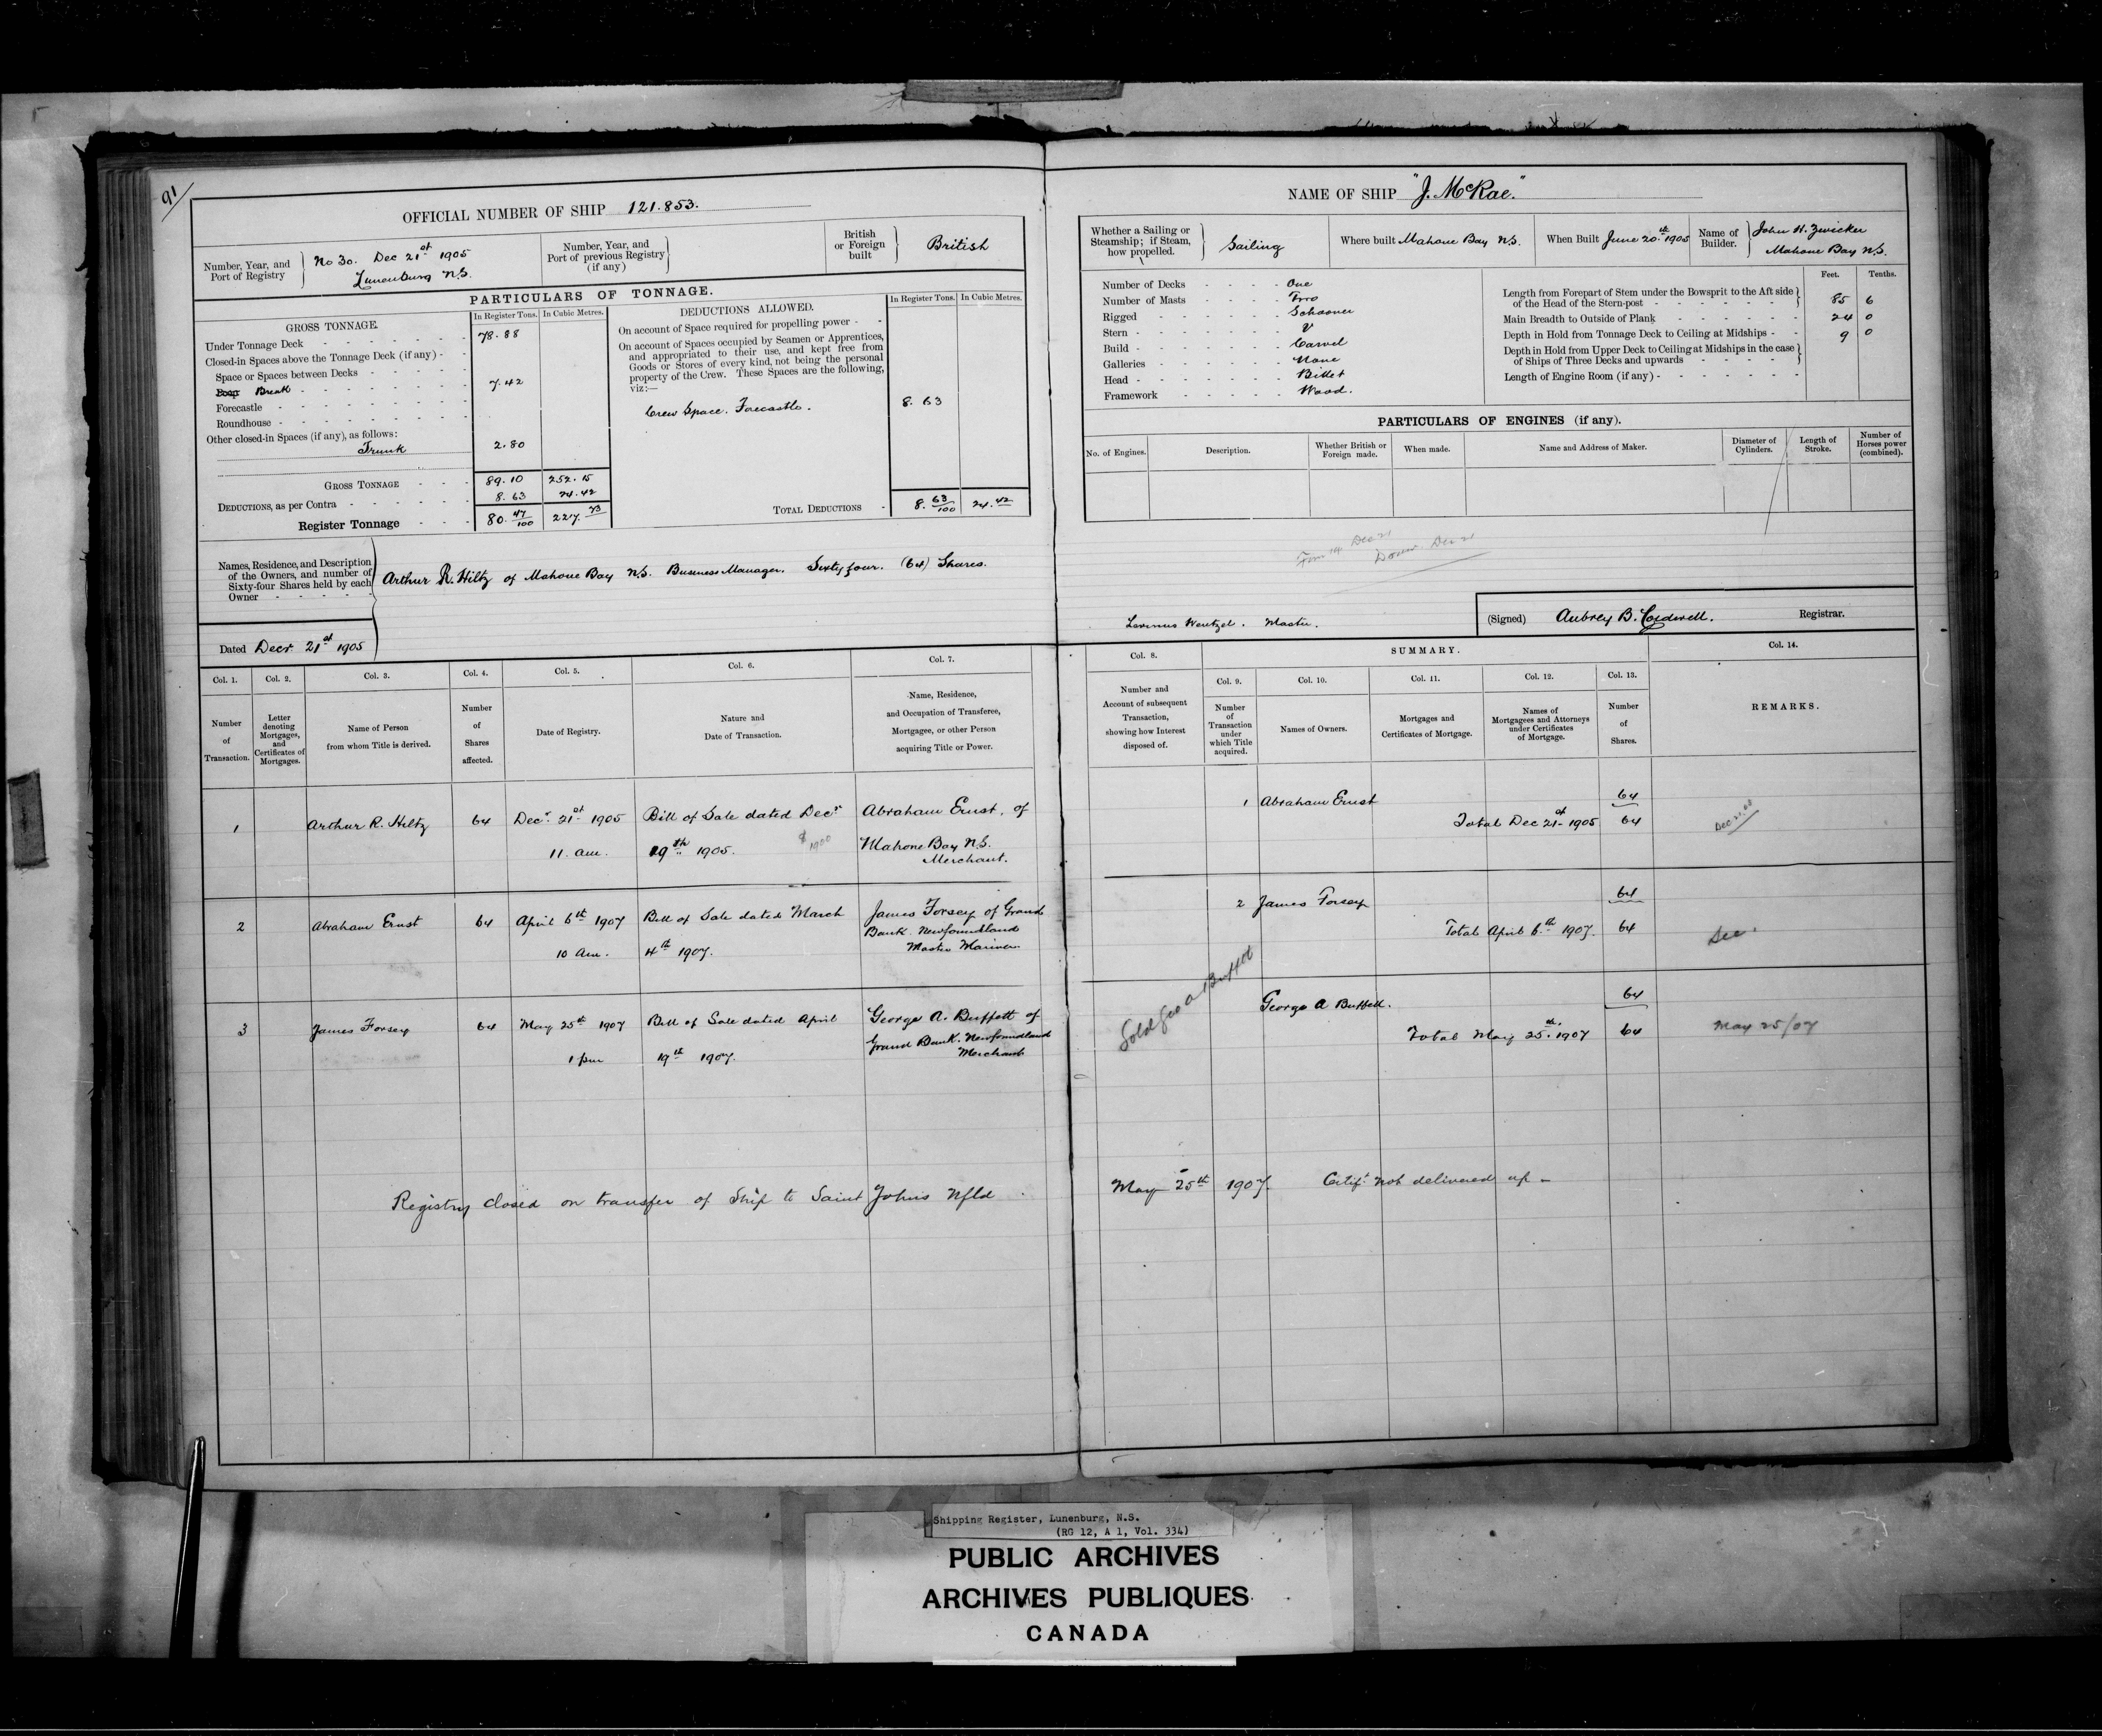 91
OFFICIAL NUMBER OF SHIP 121.853.
Number, Year, and Port of Registry
No 30. Dec 21st 1905
Lunenburg N.S.
Number, Year, and Port of previous Registry (if any)
British or Foreign built
British
PARTICULARS OF TONNAGE.
GROSS TONNAGE.
In Register Tons.
In Cubic Metres.
Under Tonnage Deck 78.88
Closed-in Spaces above the Tonnage Deck (if any) -
Space or Spaces between Decks
Poop Break 7.42
Forecastle
Roundhouse
Other closed-in Spaces (if any), as follows:
Trunk 2.80
GROSS TONNAGE 89.10 252.15
DEDUCTIONS, as per Contra 8.63 24.42
Register Tonnage 80.47/100 227.73
DEDUCTIONS ALLOWED.
In Register Tons.
In Cubic Metres.
On account of Space required for propelling power -
On account of Spaces occupied by Seamen or Apprentices,
and appropriated to their use, and kept free from
Goods or Stores of every kind, not being the personal
property of the Crew. These Spaces are the following,
viz:—
Crew Space. Forecastle. 8.63
TOTAL DEDUCTIONS 8.63/100 24.42
Names, Residence, and Description
of the Owners, and number of
Sixty-four Shares held by each
Owner
Arthur R. Hiltz of Mahone Bay N.S. Business Manager. Sixty four. (64) Shares.
Dated Decr 21st 1905
NAME OF SHIP "J. McRae."
Whether a Sailing or Steamship; if Steam, how propelled.
Sailing
Where built Mahone Bay N.S.
When Built June 20th 1905
Name of Builder.
John H. Zwicker
Mahone Bay N.S.
Number of Decks One
Number of Masts Two
Rigged Schooner
Stern V
Build Carvel
Galleries None
Head Billet
Framework Wood.
Feet. Tenths.
Length from Forepart of Stem under the Bowsprit to the Aft side
of the Head of the Stern-post 85 6
Main Breadth to Outside of Plank 24 0
Depth in Hold from Tonnage Deck to Ceiling at Midships 9 0
Depth in Hold from Upper Deck to Ceiling at Midships in the case
of Ships of Three Decks and upwards
Length of Engine Room (if any)
PARTICULARS OF ENGINES (if any).
No. of Engines.
Description.
Whether British or Foreign made.
When made.
Name and Address of Maker.
Diameter of Cylinders.
Length of Stroke.
Number of Horses power (combined).
Dec 21
Dec 21
Wentzel. Master.
(Signed) Aubrey B. Caldwell. Registrar.
Col. 1. Number of Transaction.
Col. 2. Letter denoting Mortgages, and Certificates of Mortgages.
Col. 3. Name of Person from whom Title is derived.
Col. 4. Number of Shares affected.
Col. 5. Date of Registry.
Col. 6. Nature and Date of Transaction.
Col. 7. Name, Residence, and Occupation of Transferee, Mortgagee, or other Person acquiring Title or Power.
Col. 8. Number and Account of subsequent Transaction, showing how Interest disposed of.
SUMMARY.
Col. 9. Number of Transaction under which Title acquired.
Col. 10. Names of Owners.
Col. 11. Mortgages and Certificates of Mortgage.
Col. 12. Names of Mortgagees and Attorneys under Certificates of Mortgage.
Col. 13. Number of Shares.
Col. 14. REMARKS.
1 Arthur R. Hiltz 64 Decr. 21st 1905 Bill of Sale dated Decr Abraham Ernst, of
11. am. 19th 1905. $1900 Mahone Bay N.S.
Merchant.
1 Abraham Ernst 64
Total Dec 21st 1905 64
2 Abraham Ernst 64 April 6th 1907 Bill of Sale dated March James Forsey of Grand
10 Am. 4th 1907. Bank. Newfoundland
Master Mariner
2 James Forsey 64
Total April 6th 1907. 64
3 James Forsey 64 May 25th 1907 Bill of Sale dated April George A. Buffett of
1 pm 19th 1907. Grand Bank. Newfoundland
Merchant
Sold Geo A Buffett
George A Buffett. 64
Total May 25th. 1907 64 May 25/07
Registry closed on transfer of Ship to Saint Johns Nfld. May 25th 1907. Certift not delivered up -
Shipping Register, Lunenburg, N.S.
(RG 12, A 1, Vol. 334)
PUBLIC ARCHIVES
ARCHIVES PUBLIQUES
CANADA